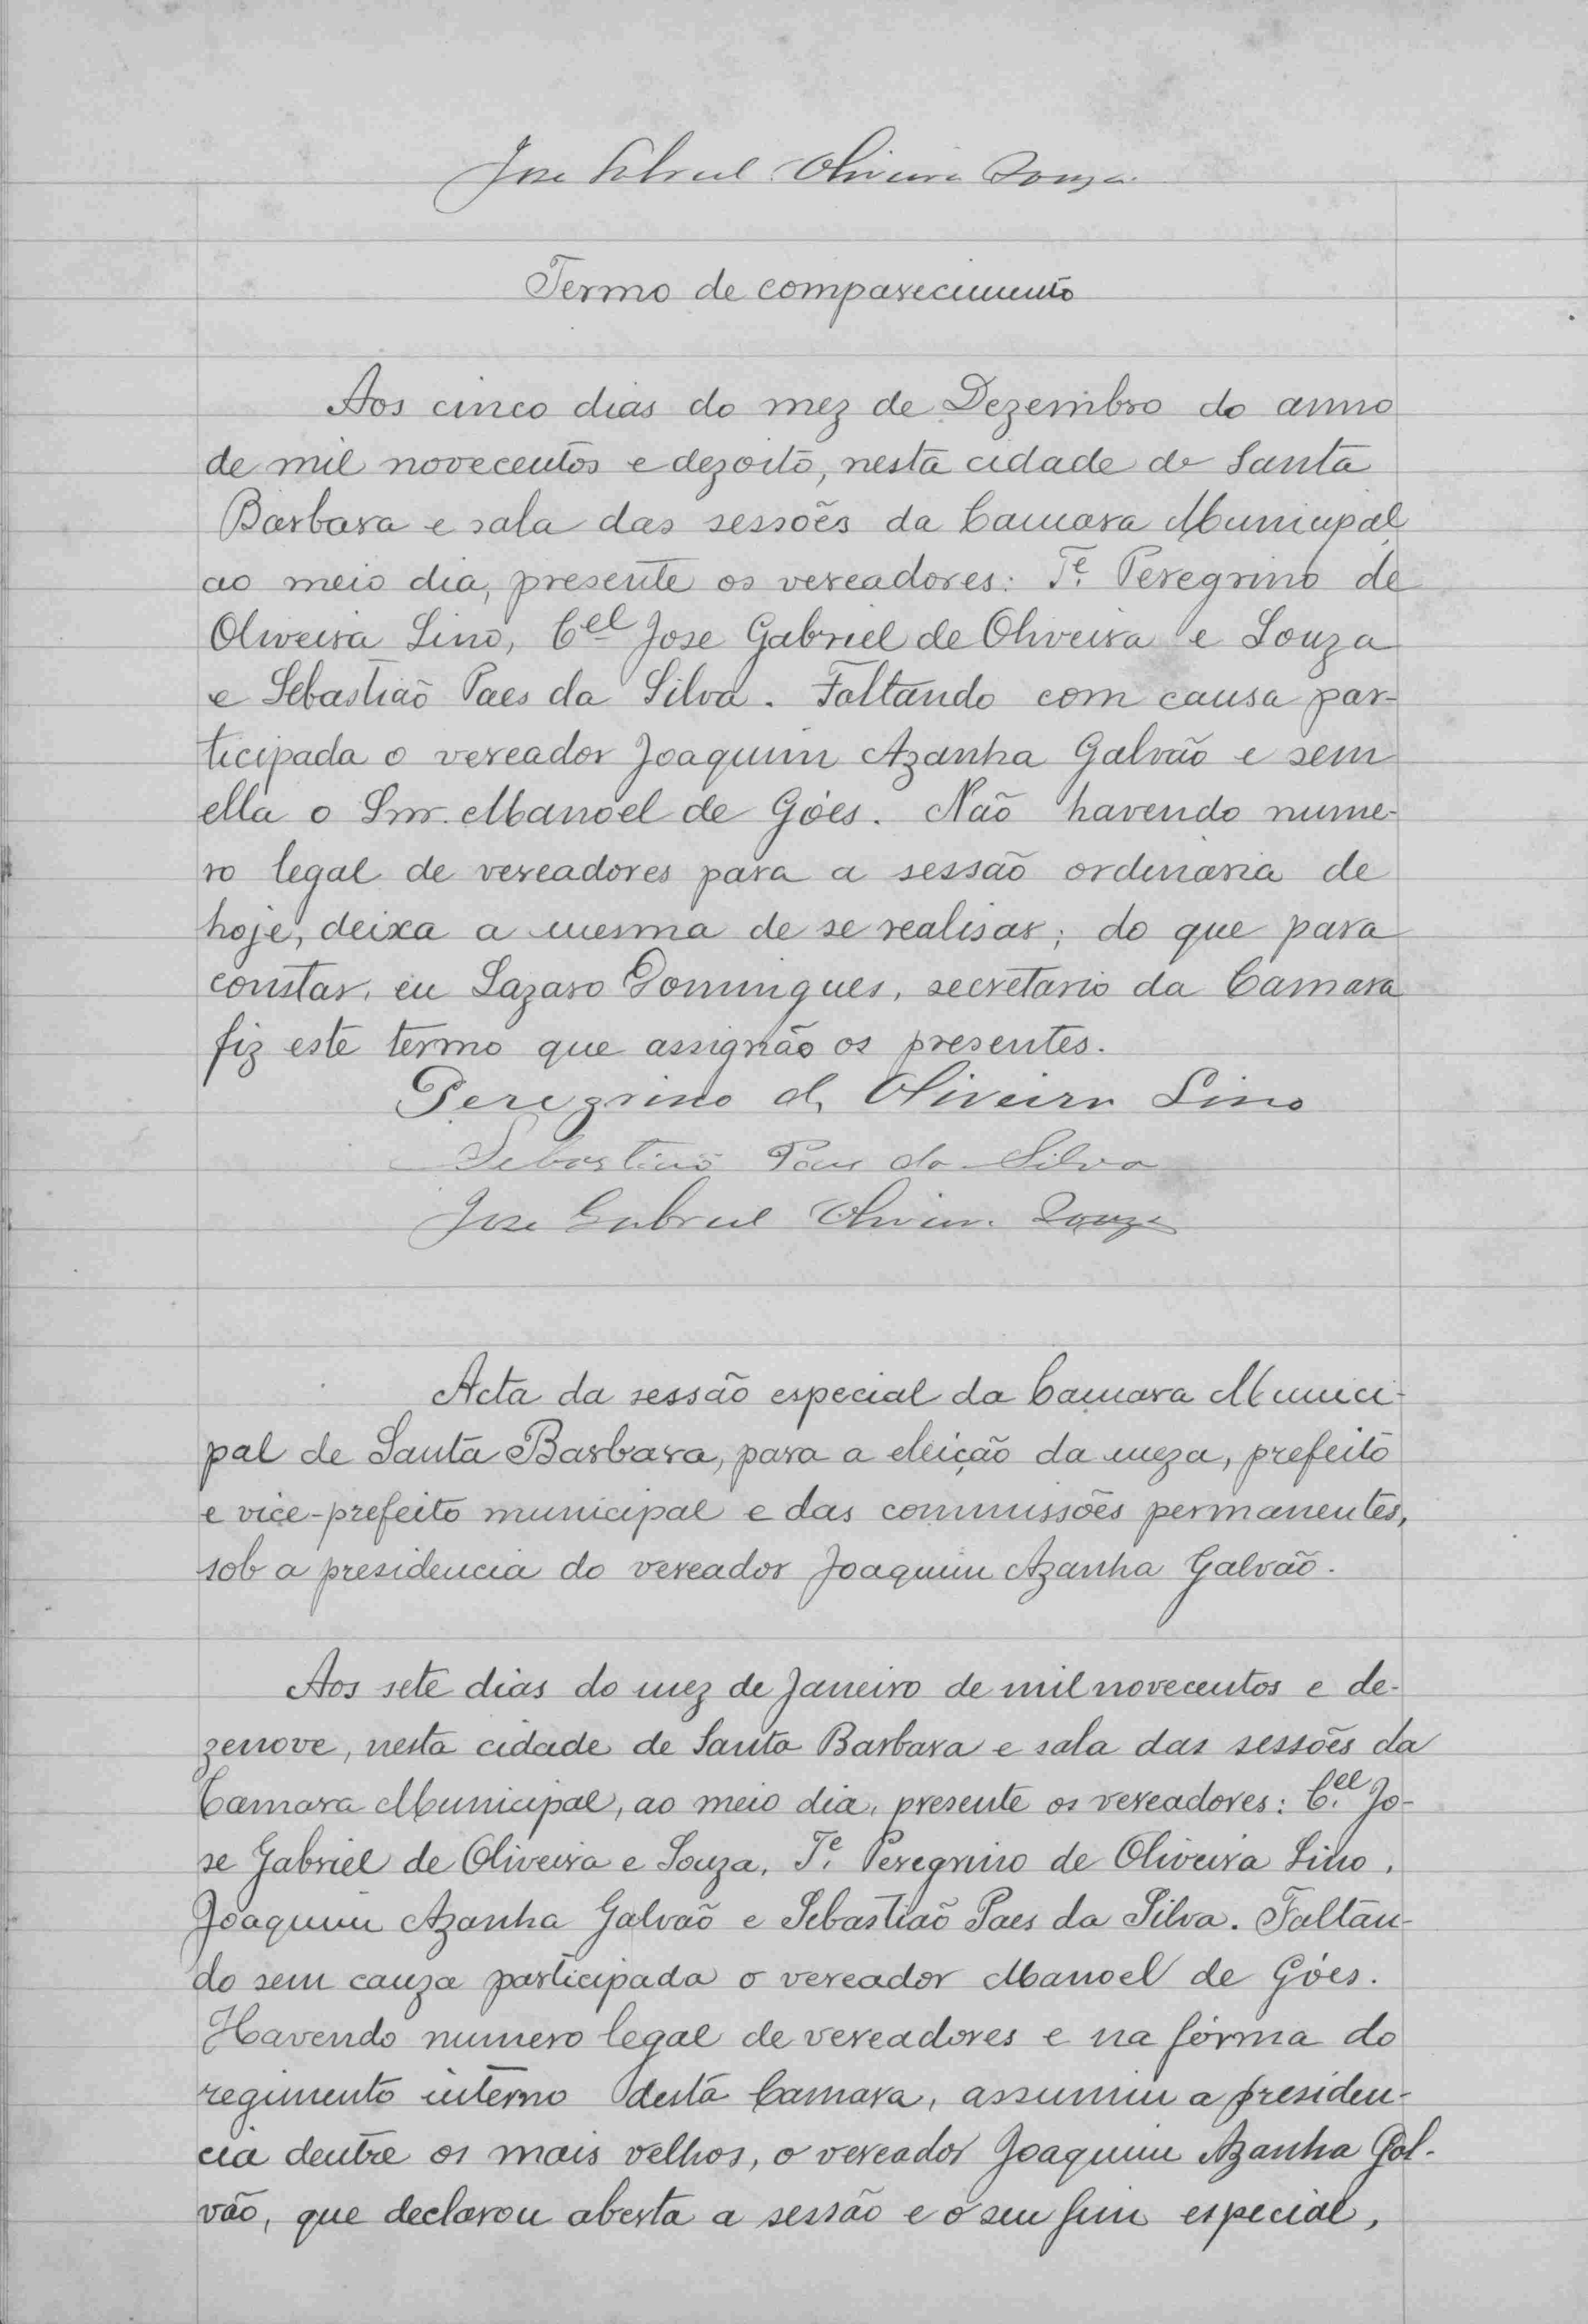 Jose Gabriel Oliveira Souza
Termo de comparecimento
Aos cinco dias do mez de Dezembro do anno
de mil novecentos e dezoito, nesta cidade de Santa
Barbara e sala das sessões da Camara Municipal
ao meio dia, presente os vereadores: Te. Peregrino de
Oliveira Lino, Cel Jose Gabriel de Oliveira e Souza
e Sebastião Paes da Silva. Faltando com causa par-
ticipada o vereador Joaquim Azanha Galvão e sem
ella o Snr. Manoel de Góes. Não havendo nume-
ro legal de vereadores para a sessão ordinaria de
hoje, deixa a mesma de se realisar; do que para
constar, eu Lazaro Domingues, secretario da Camara
fiz este termo que assignão os presentes.
Peregrino de Oliveira Lino
Sebastião Paes da Silva
Jose Gabriel Oliveira Souza
Acta da sessão especial da Camara Munici-
pal de Santa Barbara, para a eleição da meza, prefeito
e vice-prefeito municipal e das commissões permanentes,
sob a presidencia do vereador Joaquim Azanha Galvão.
Aos sete dias do mez de Janeiro de mil novecentos e de-
zenove, nesta cidade de Santa Barbara e sala das sessões da
Camara Municipal, ao meio dia, presente os vereadores: Cel. Jo-
se Gabriel de Oliveira e Souza, Te. Peregrino de Oliveira Lino,
Joaquim Azanha Galvão e Sebastião Paes da Silva. Faltan-
do sem cauza participada o vereador Manoel de Góes.
Havendo numero legal de vereadores e na fórma do
regimento interno desta Camara, assumiu a presiden-
cia dentre os mais velhos, o vereador Joaquim Azanha Gal-
vão, que declarou aberta a sessão e o seu fim especial,